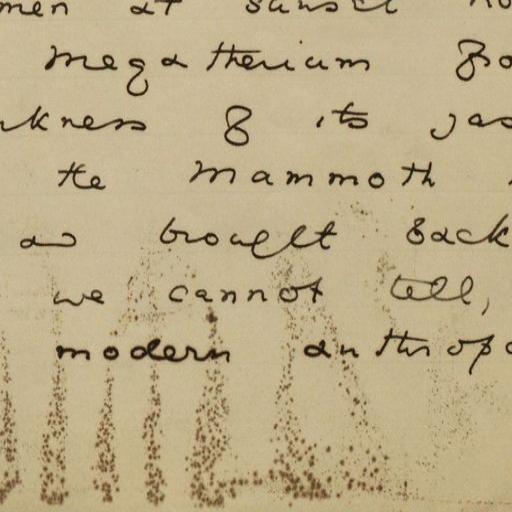 men at sunset
Megatherium
kness & its
the Mammoth
as brought back
we cannot tell,
modern anthropo